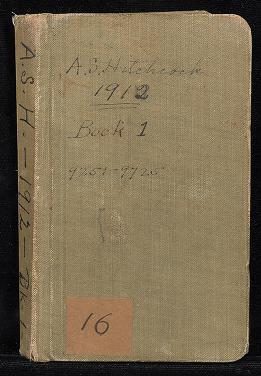 A. S. H. — 1912 — Bk. 1
A.S. Hitchcock
1912
Book 1
9251-9725
16